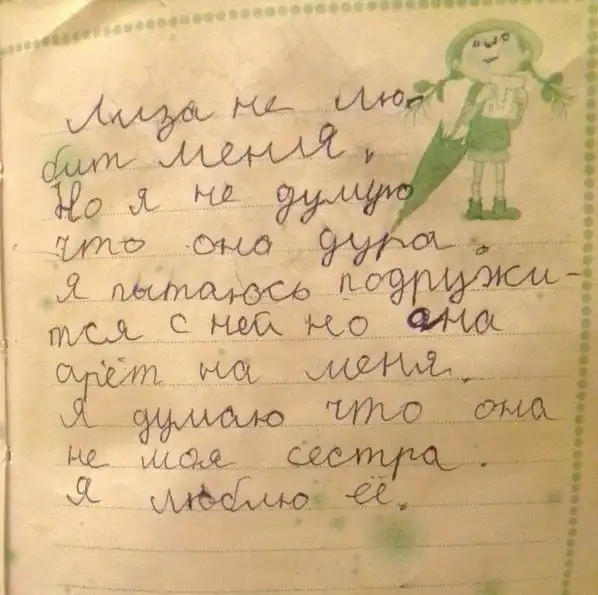 Лиза не лю-
бит меня.
Но я не думую
что она дура.
Я пытаюсь подружи-
тся с ней но она
арёт на меня.
Я думаю что она
не моя сестра.
Я люблю её.